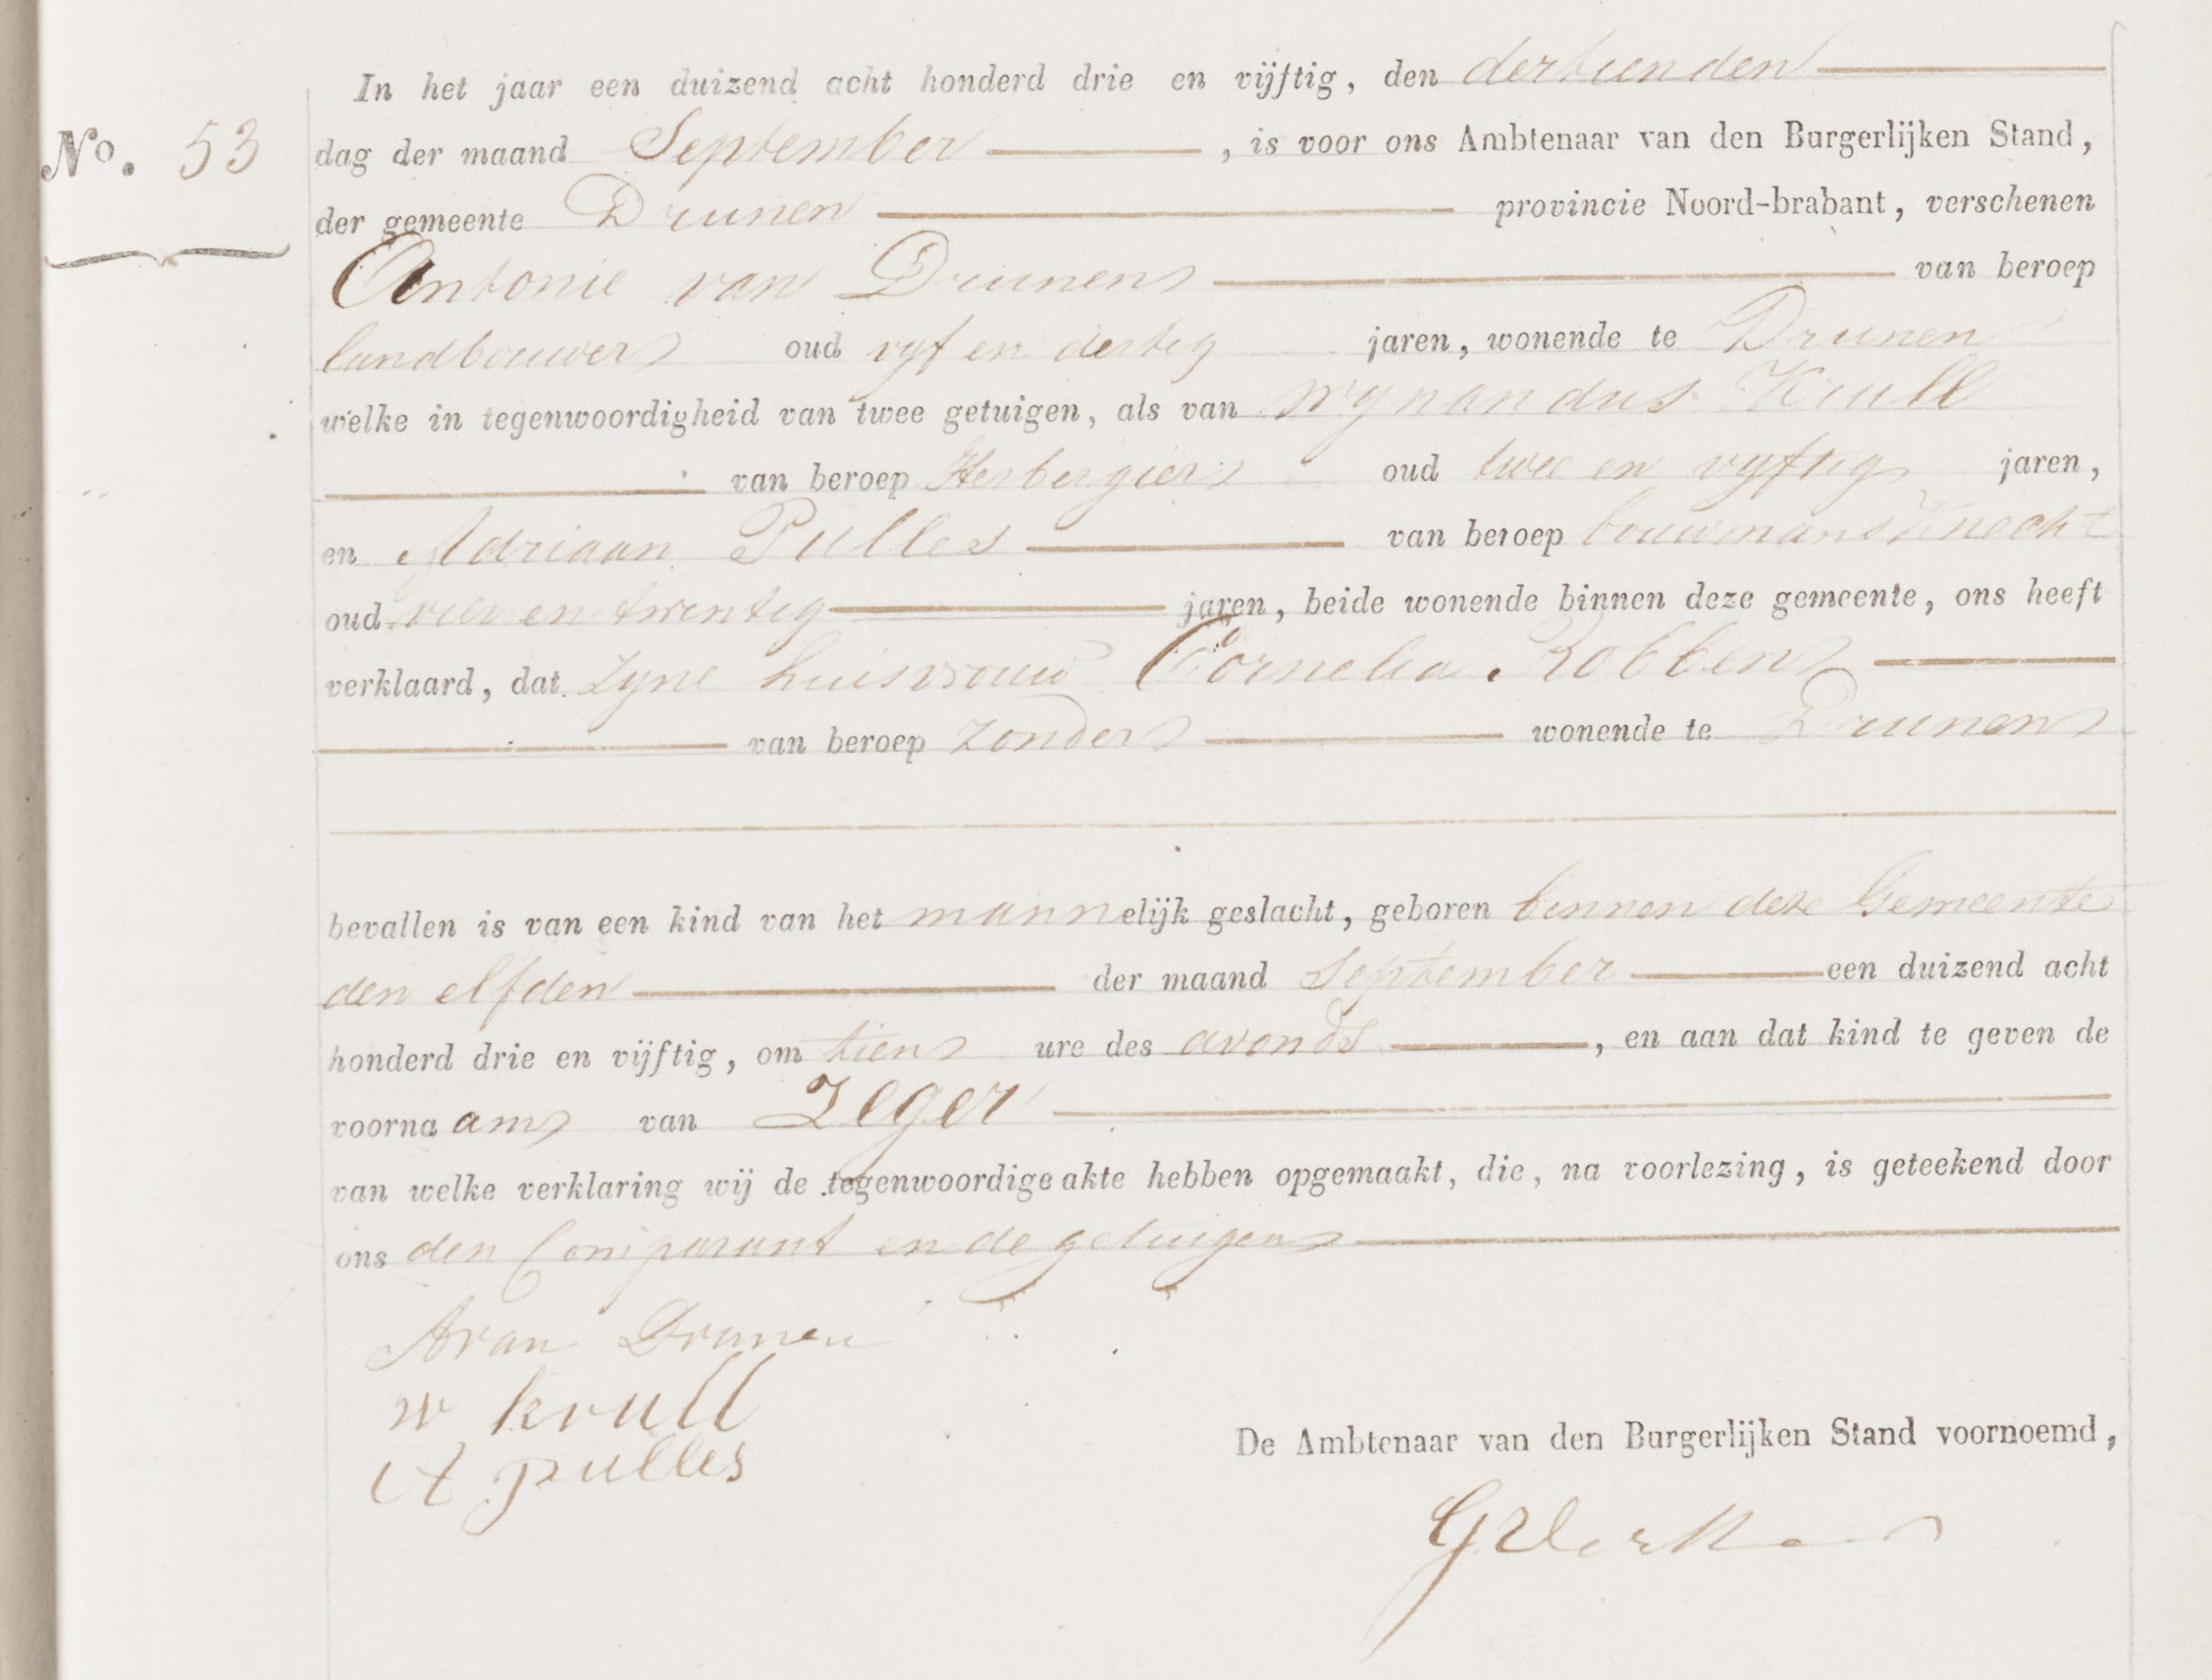 In het jaar een duizend acht honderd drie en vijftig, den dertienden
No. 53
dag der maand September, is voor ons Ambtenaar van den Burgerlijken Stand,
der gemeente Drunen provincie Noord-brabant, verschenen
Antonie van Drunen van beroep
landbouwer oud vyf en dertig jaren, wonende te Drunen
welke in tegenwoordigheid van twee getuigen, als van Wynandus Krull
van beroep Herbergier oud twee en vyftig jaren,
en Adriaan Pulles van beroep bouwmansknecht
oud vier en twentig jaren, beide wonende binnen deze gemeente, ons heeft
verklaard, dat zyne huisvrouw Cornelia Robben
van beroep zonder wonende te Drunen
bevallen is van een kind van het mannelijk geslacht, geboren binnen deze Gemeente
den elfden der maand September een duizend acht
honderd drie en vijftig, om tien ure des avonds, en aan dat kind te geven de
voornaam van Zeger
van welke verklaring wij de tegenwoordige akte hebben opgemaakt, die, na voorlezing, is geteekend door
ons den Comparant en de getuigen
A van Drunen
W krull
A pulles
De Ambtenaar van den Burgerlijken Stand voornoemd,